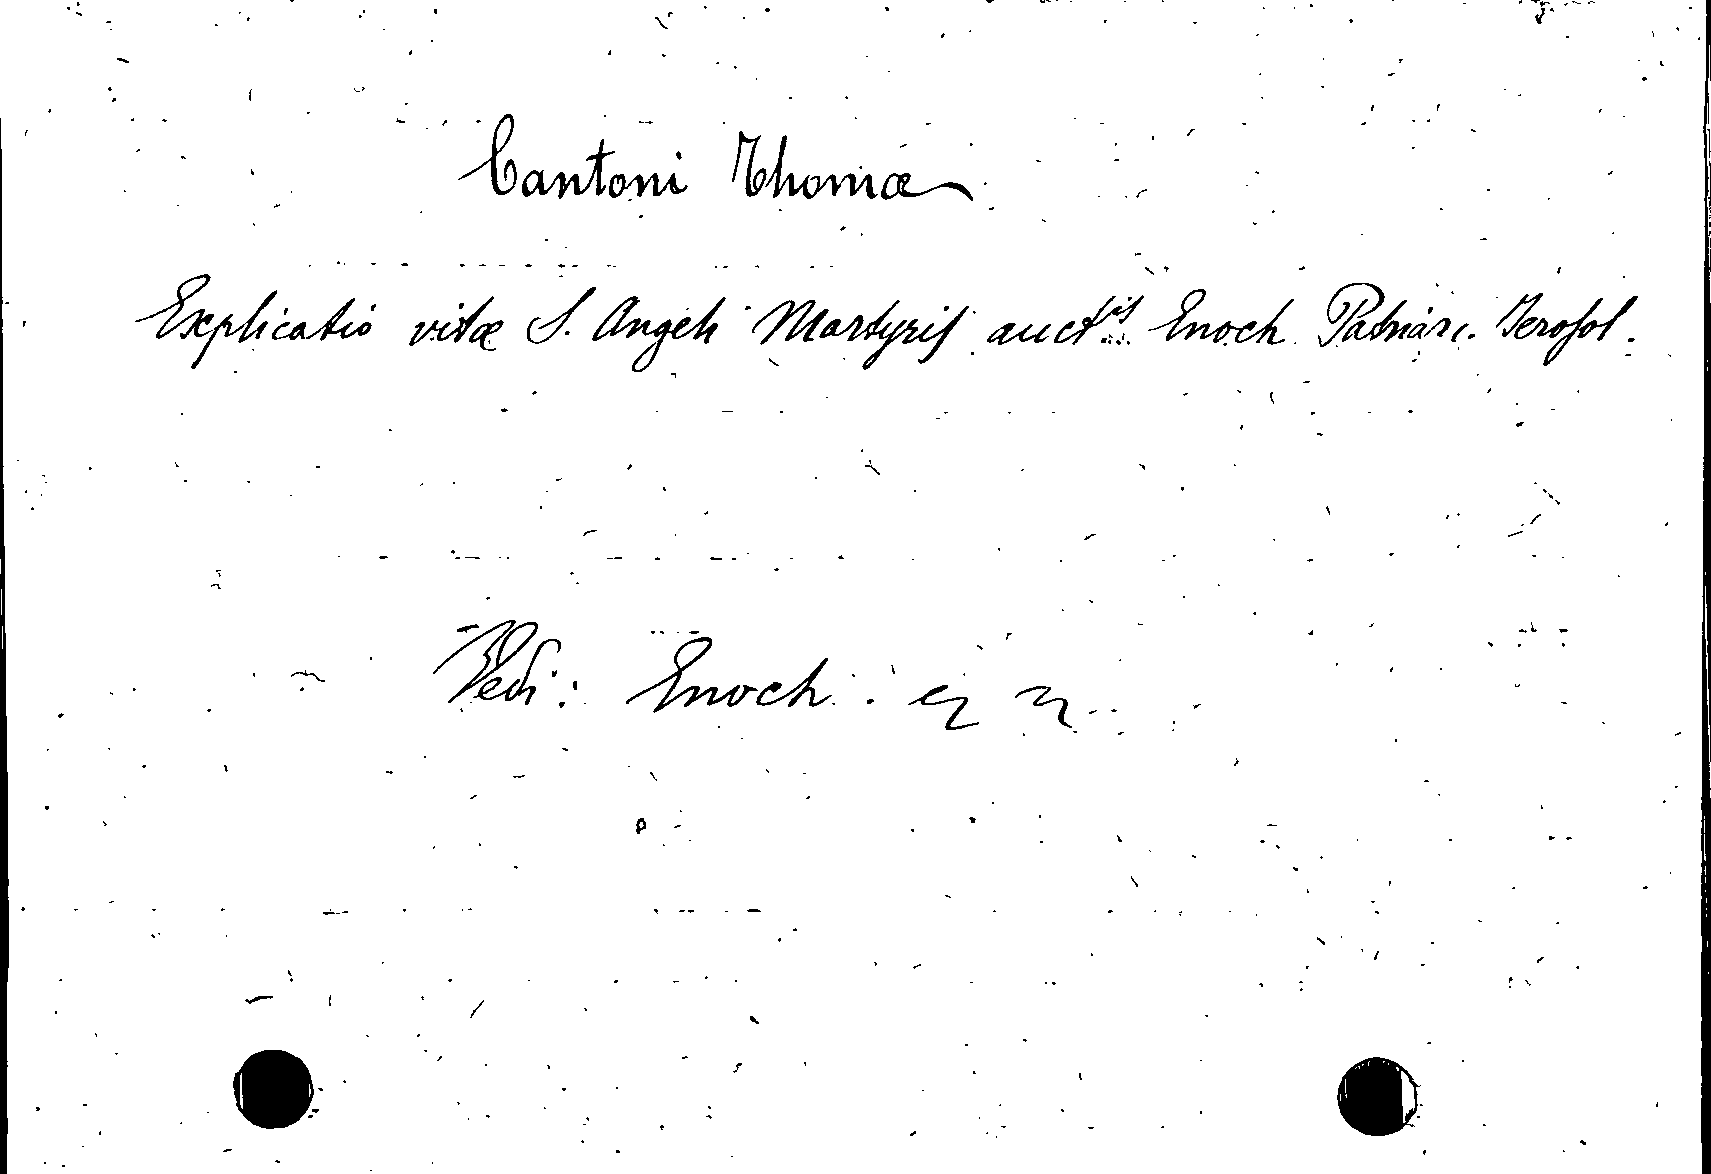 Cantoni Thomæ
Explicatio vitæ S. Angeli Martyris auctris Enoch Patriarc. Ierosol.
Vedi: Enoch.